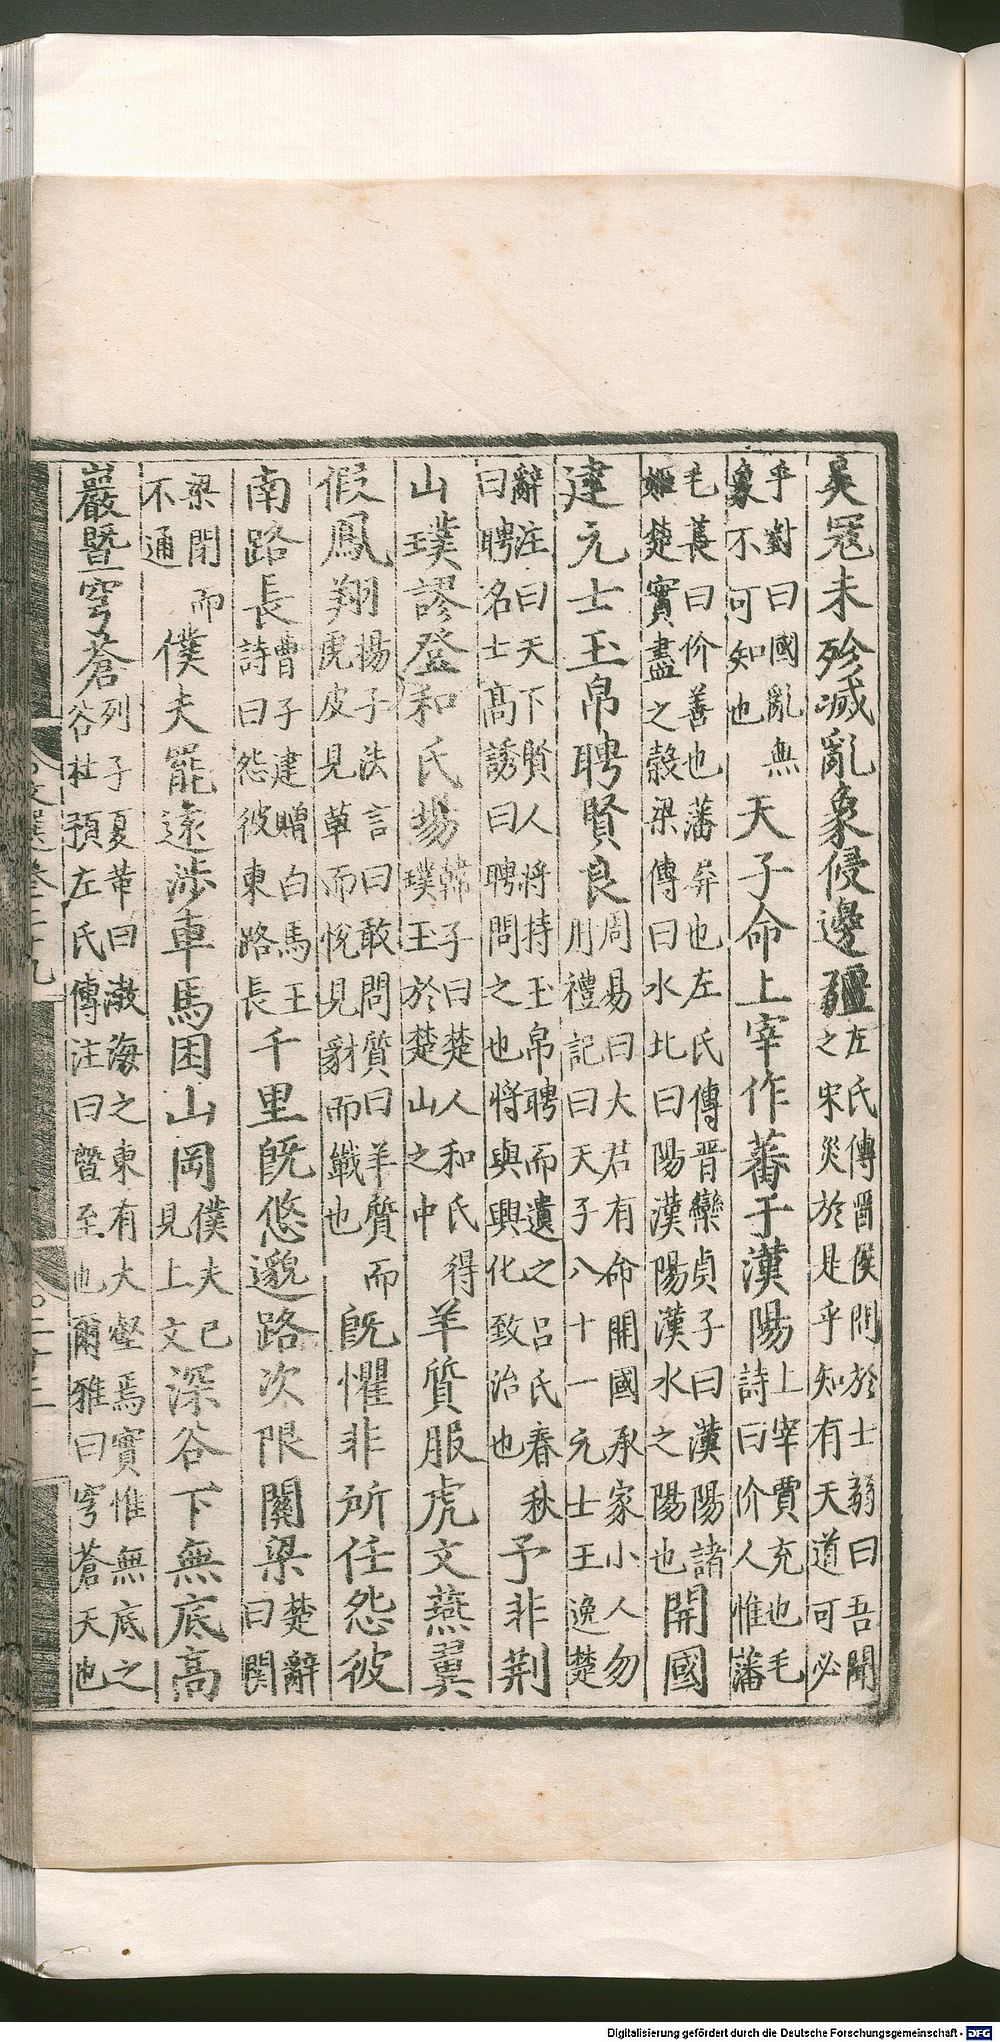 吳冦未殄滅亂象侵邊疆左氏傳晉侯問於士弱曰吾聞之宋災於是乎知有天道可必
乎對曰國亂無象不可知也天子命上宰作蕃于漢陽上宰賈充也毛詩曰价人惟藩
毛萇曰价善也藩屏也左氏傳晉欒貞子曰漢陽諸姬楚實盡之榖梁傳曰水北曰陽漢陽漢水之陽也開國
建元士玉帛聘賢良周易曰大君有命開國承家小人勿用禮記曰天子八十一元士王逸楚
辭注曰天下賢人將持玉帛聘而遺之呂氏春秋曰聘名士髙誘曰聘問之也將與興化致治也予非荆
山璞謬登和氏場韓子曰楚人和氏得璞玉於楚山之中羊質服虎文燕翼
假鳳翔揚子法言曰敢問質曰羊質而虎皮見草而恱見豺而戰也旣懼非所任怨彼
南路長曹子建贈白馬王詩曰怨彼東路長千里旣悠邈路次限關梁楚辭曰關
梁閉而不通僕夫罷遠涉車馬困山岡僕夫已見上文深谷下無底高
巖曁穹蒼列子夏革曰渤海之東有大壑焉實惟無底之谷杜預左氏傳注曰曁至也爾雅曰穹蒼天也
Digitalisierung gefördert durch die Deutsche Forschungsgemeinschaft - DFG